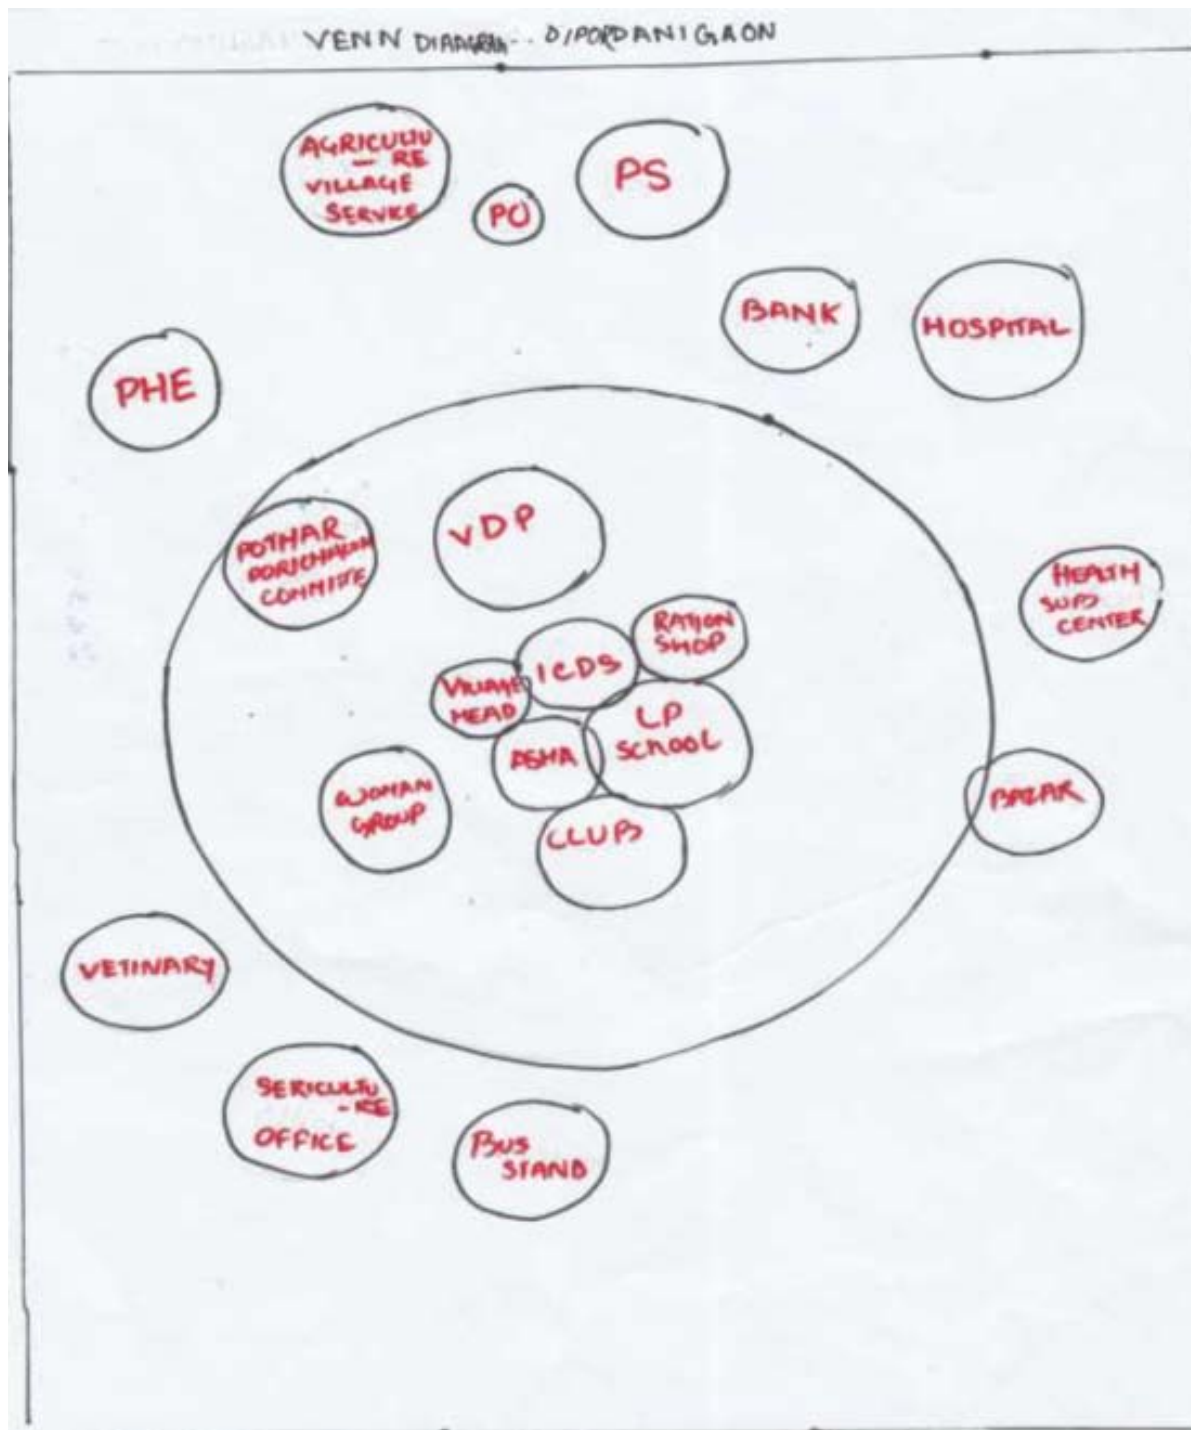 VENN DIAAGRAM-.. DIPORDANIGAON
AGRICULTU
-RE
VILLAGE
SERVICE
PO
PS
BANK
HOSPITAL
PHE
POTHAR
PORICHALON
COMMITE
VDP
RATION
SHOP
ICDS
VILLAGE
HEAD
LP
SCHOOL
ASHA
WOMAN
GROUP
CLUB
HEALTH
SUB
CENTER
BAZAR
VETINARY
SERICULTU
-RE
OFFICE
BUS
STAND